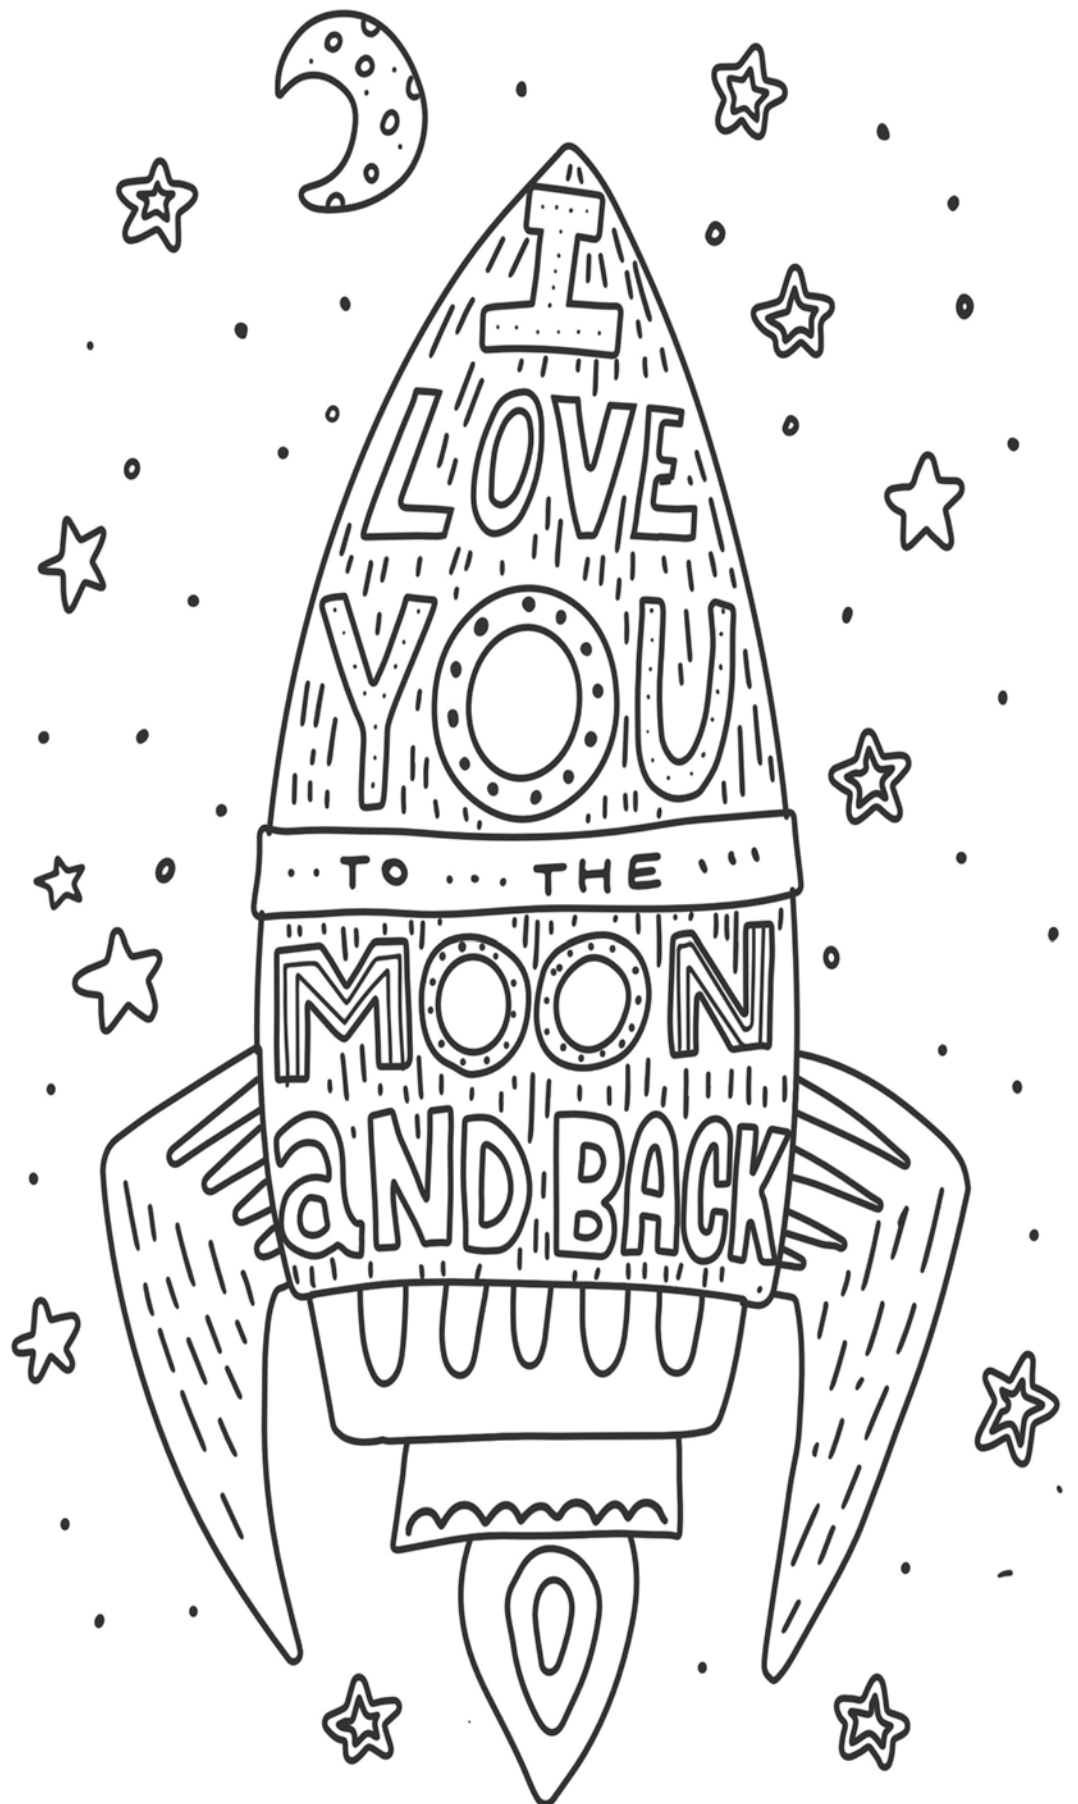 I
LOVE
YOU
·· TO ... THE ···
MOON
aND BACK